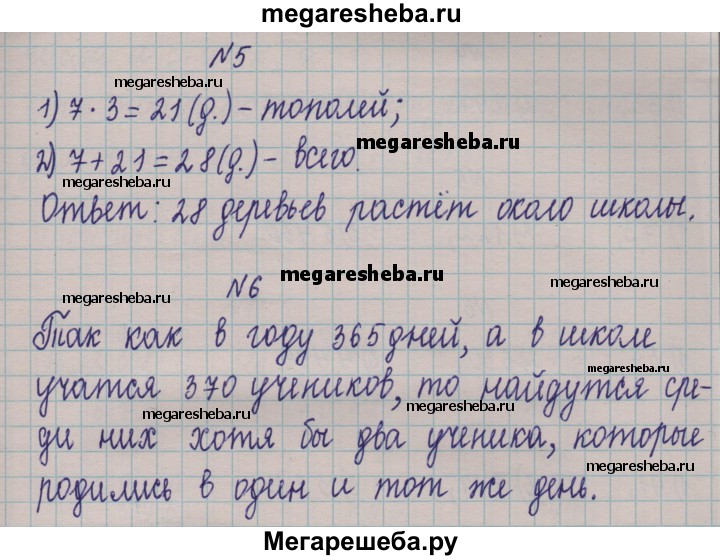 megaresheba.ru
N5
megaresheba.ru
1) 7 · 3 = 21 (д.) – тополей;
megaresheba.ru
2) 7 + 21 = 28 (д.) – всего.
megaresheba.ru
Ответ: 28 деревьев растёт около школы.
megaresheba.ru
N6
megaresheba.ru
Так как в году 365 дней, а в школе
megaresheba.ru
учатся 370 учеников, то найдутся сре-
megaresheba.ru
ди них хотя бы два ученика, которые
megaresheba.ru
родились в один и тот же день.
Мегарешеба.ру